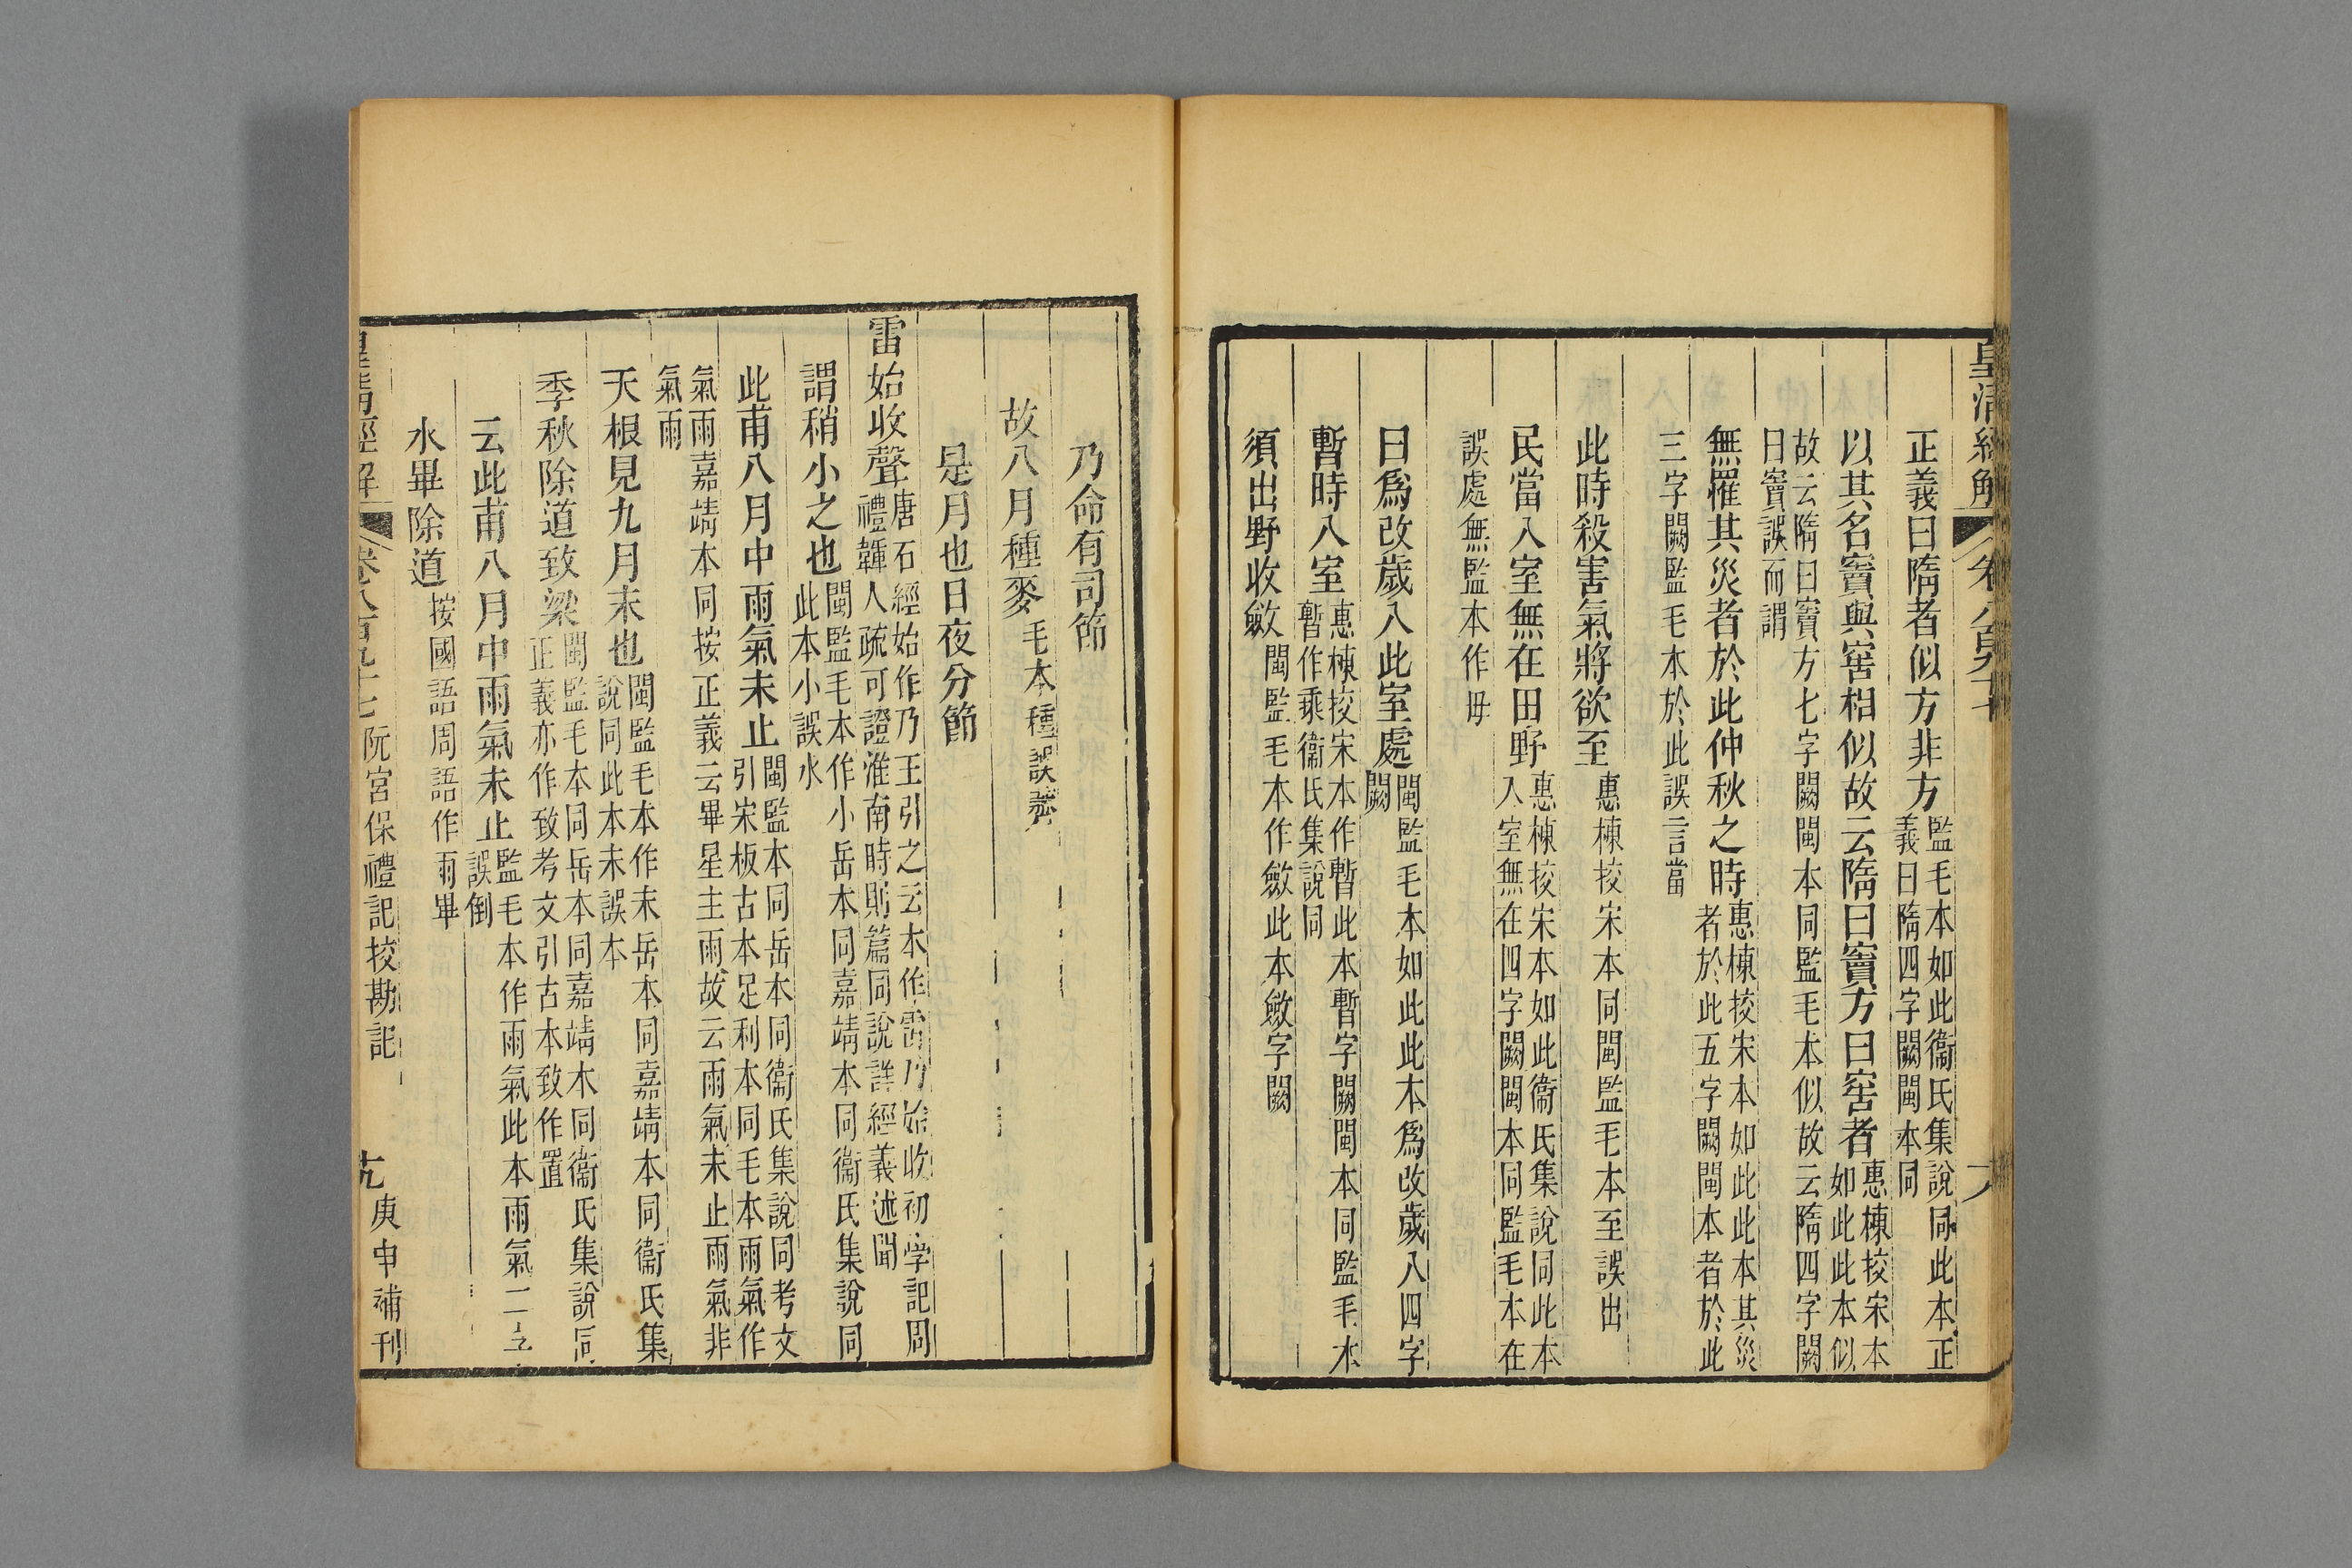 皇清經解 卷八百九十七 十八
正義曰隋者似方非方監毛本如此衞氏集說同此本正義曰隋四字闕閩本同
以其名竇與窖相似故云隋曰竇方曰窖者惠棟挍宋本如此此本似
故云隋曰竇方七字闕閩本同監毛本似故云隋四字闕曰竇誤而謂
無罹其災者於此仲秋之時惠棟挍宋本如此此本其災者於此五字闕閩本者於此
三字闕監毛本於此誤言當
此時殺害氣將欲至惠棟挍宋本同閩監毛本至誤出
民當入室無在田野惠棟挍宋本如此衞氏集說同此本入室無在四字闕閩本同監毛本在
誤處無監本作毋
曰爲改歲入此室處閩監毛本如此此本爲改歲入四字闕
暫時入室惠棟挍宋本作暫此本暫字闕閩本同監毛本暫作乘衞氏集說同
須出野收斂閩監毛本作斂此本斂字闕
乃命有司節
故八月種麥毛本種誤
是月也日夜分節
雷始收聲唐石經始作乃王引之云本作雷乃始收初學記周禮韗人疏可證淮南時則篇同說詳經義述聞
謂稍小之也閩監毛本作小岳本同嘉靖本同衞氏集說同此本小誤水
此甫八月中雨氣未止閩監本同岳本同衞氏集說同考文引宋板古本足利本同毛本雨氣作
氣雨嘉靖本同按正義云畢星主雨故云雨氣未止雨氣非氣雨
天根見九月末也閩監毛本作末岳本同嘉靖本同衞氏集說同此本末誤本
季秋除道致梁閩監毛本同岳本同嘉靖本同衞氏集說同正義亦作致考文引古本致作置
云此甫八月中雨氣未止監毛本作雨氣此本雨氣二字誤倒
水畢除道按國語周語作雨畢
皇清經解 卷八百九十七 阮宮保禮記挍勘記 十九 庚申補刊